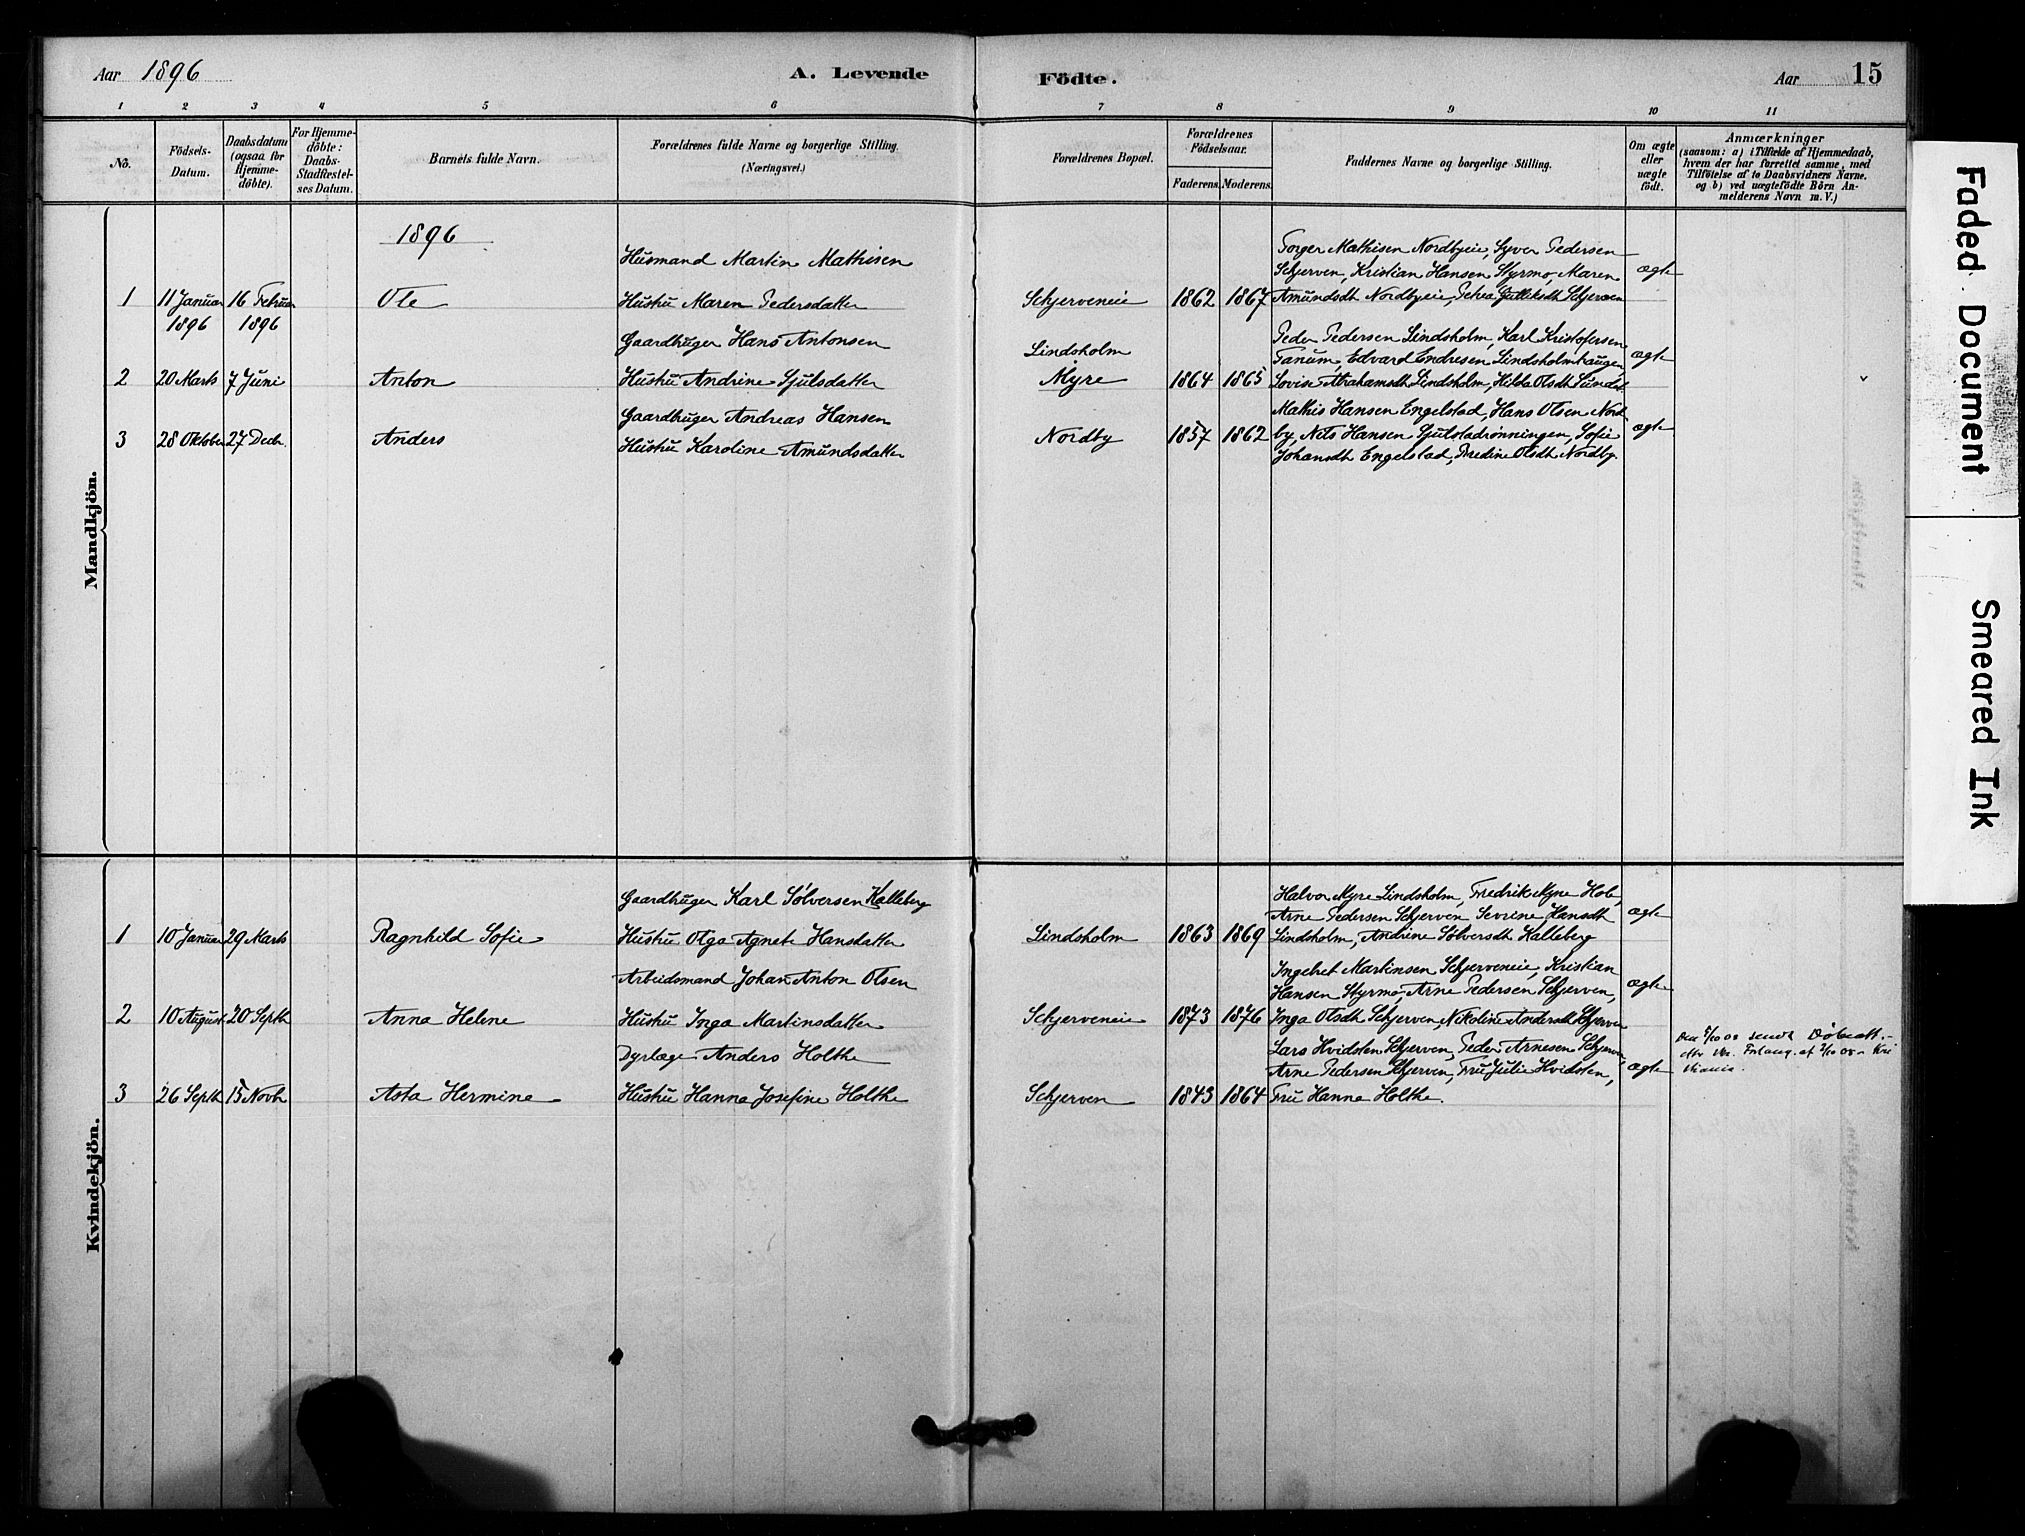 Aar 1896
A. Levende Födte.
Aar 15
1 2 3 4 5 6 7 8 9 10 11
No.
Födsels-Datum.
Daabsdatum (ogsaa for Hjemme-döbte).
For Hjemme-döbte: Daabs-Stadfæstel-ses Datum.
Barnets fulde Navn.
Forældrenes fulde Navne og borgerlige Stilling. (Næringsvei.)
Forældrenes Bopæl.
Forældrenes Födselsaar.
Faderens. Moderens.
Faddernes Navne og borgerlige Stilling.
Om ægte eller uægte födt.
Anmærkninger
(saasom: a) i Tilfælde af Hjemmedaab,
hvem der har forrettet samme, med
Tilföielse af to Daabsvidners Navne.
og b) ved uægtefödte Börn An-
melderens Navn m. V.)
Mandkjön.
1896
Husmand Martin Mathisen
Torger Mathisen Nordbyeie, Syver Pedersen
Schjerven, Kristian Hansen Styrmo, Maren ægte
1 11 Januar 16 Februar Ole Hustru Maren Pedersdatter Schjerveneie 1862 1867 Amundsdt Nordbyeie, Petrea Gulliksdt Schjerven
1896 1896
Gaardbruger Hans Antonsen Lindsholm Peder Pedersen Lindsholm, Karl Kristofersen
Fanum, Edvard Endresen Lindsholmhaugen, ægte
2 20 Marts 7 Juni Anton Hustru Andrine Sjulsdatter Myre 1864 1865 Lovise Abrahamsdt Lindsholm, Hilda Olsdt Sundet
Gaardbruger Andreas Hansen Mathis Hansen Engelstad, Hans Olsen Nord
3 28 Oktober 27 Decbr. Anders Hustru Karoline Amundsdatter Nordby 1857 1862 by, Nils Hansen Sjulstadrønningen, Sofie ægte
Johansdt Engelstad, Fredine Olsdt Nordby.
Kvindekjön.
Gaardbruger Karl Sølversen Kalleberg Halvor Myre Lindsholm, Fredrik Myre Hol,
Arne Pedersen Schjerven Sevrine Hansdt ægte
1 10 Januar 29 Marts Ragnhild Sofie Hustru Olga Agnete Hansdatter Lindsholm 1863 1869 Lindsholm, Andrine Sølversdt Kalleberg
Arbeidsmand Johan Anton Olsen Ingebret Martinsen Schjerveneie, Kristian
Hansen Styrmo, Arne Pedersen Schjerven, ægte
2 10 August 20 Septb Anna Helene Hustru Inga Martinsdatter Schjerveneie 1873 1876 Inga Olsdt Schjerven, Nikoline Andersdt Schjerven
Dyrlæge Anders Holthe Lars Hvidsten Schjerven, Peder Arnesen Schjerven,
Arne Pedersen Schjerven, Fru Julie Hvidsten, ægte
3 26 Septb 15 Novb Asta Hermine Hustru Hanna Josefine Holthe Schjerven 1843 1864 Fru Hanna Holthe.
Faded Document
Smeared Ink